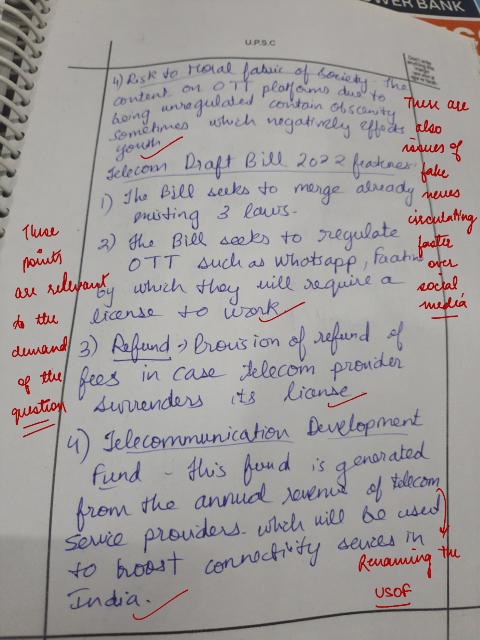 POWER BANK
U.P.S.C
4) Risk to Moral fabric of Society - The
content on OTT platforms due to
being unregulated contain obscenity
sometimes which negatively effects
youth
Telecom Draft Bill 2022 features
1) The Bill seeks to merge already
existing 3 laws.
2) The Bill seeks to regulate
OTT such as Whatsapp,
by which they will require a
license to work
3) Refund → Provision of refund of
fees in case telecom provider
surrenders its license
4) Telecommunication Development
Fund - This fund is generated
from the annual revenue of telecom
service providers which will be used
to boost connectivity in
India.
There are
also
issues of
fake
news
circulating
faster
over
social
media
These
points
are relevant
to the
demand
of the
question
Renaming the
USOF